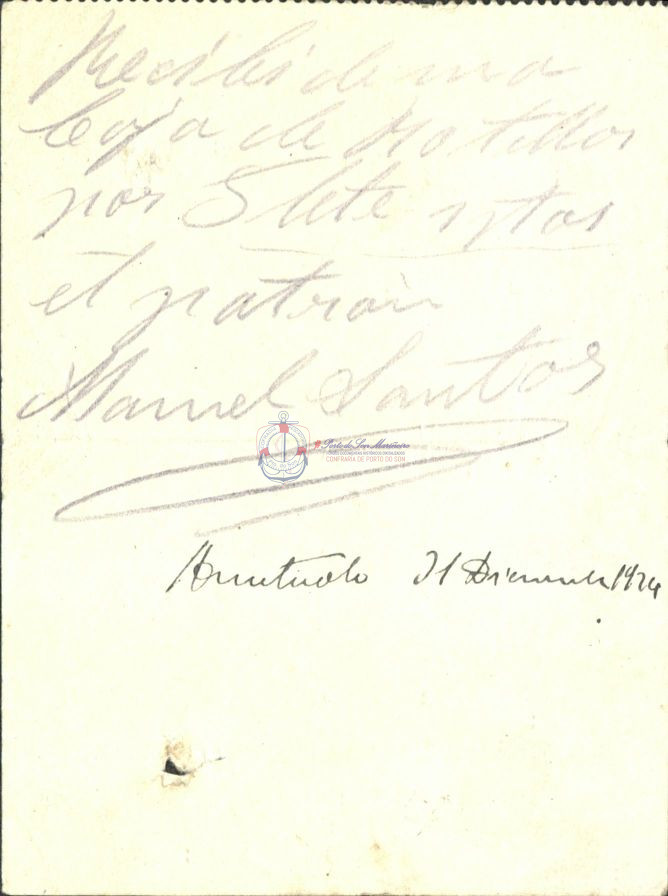 Recibi de una
caja de Motillos
por Siete ptas
el patrón
Manuel Santos
Porto do Son Mariñeiro
CONFRARÍA DE PORTO DO SON
31 Diciembre 1924